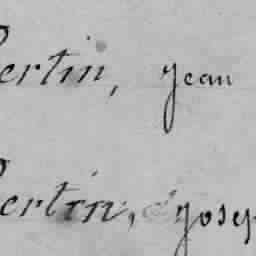 Bertin, Jean
Bertin, Josep